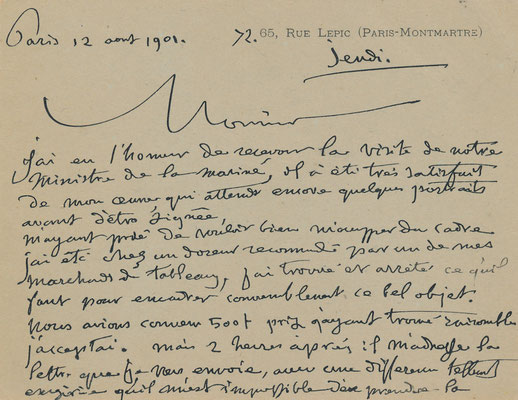 Paris 12 aout 1901. 72. 65, RUE LEPIC (PARIS-MONTMARTRE)
Jeudi.
Monsieur
j'ai eu l'honneur de recevoir la visite de notre
Ministre de la marine, il a été très satisfait
de mon œuvre qui attend encore quelques portraits
avant d'être signée,
m'ayant prié de vouloir bien m'occuper du cadre
j'ai été chez un doreur recommandé par un de mes
marchands de tableaux, j'ai trouvé et arrêté ce qu'il
faut pour encadrer convenablement ce bel objet.
nous avions convenu 500f prix qu'ayant trouvé raisonnable
j'acceptai. mais 2 heures après il m'adressa la
lettre que je vous envoie, avec une différence tellement
exagérée qu'il m'est impossible d'en prendre la